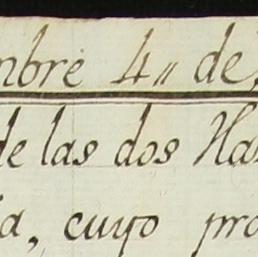 mbre 4,, de
de las dos Ha
a, cuyo pro